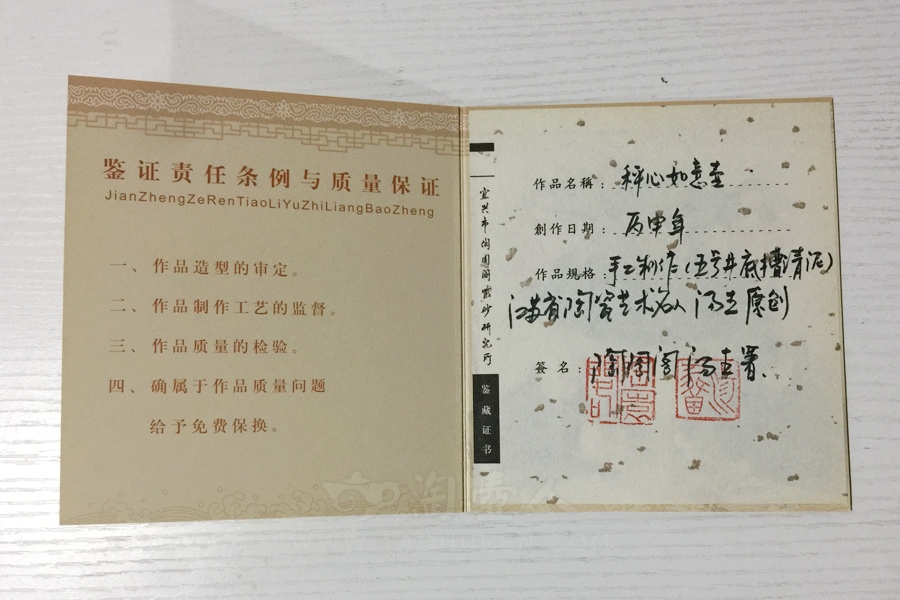 鉴证责任条例与质量保证
JianZhengZeRenTiaoLiYuZhiLiangBaoZheng
一、作品造型的审定。
二、作品制作工艺的监督。
三、作品质量的检验。
四、确属于作品质量问题
给予免费保换。
宜兴市陶陶阁紫砂研究所
鉴藏证书
作品名稱：秤心如意壶
創作日期：丙申年
作品规格：手工制作（五号井底槽清泥）
江苏省陶瓷艺术名人 汤杰原创
簽名：陶陶阁 汤杰署